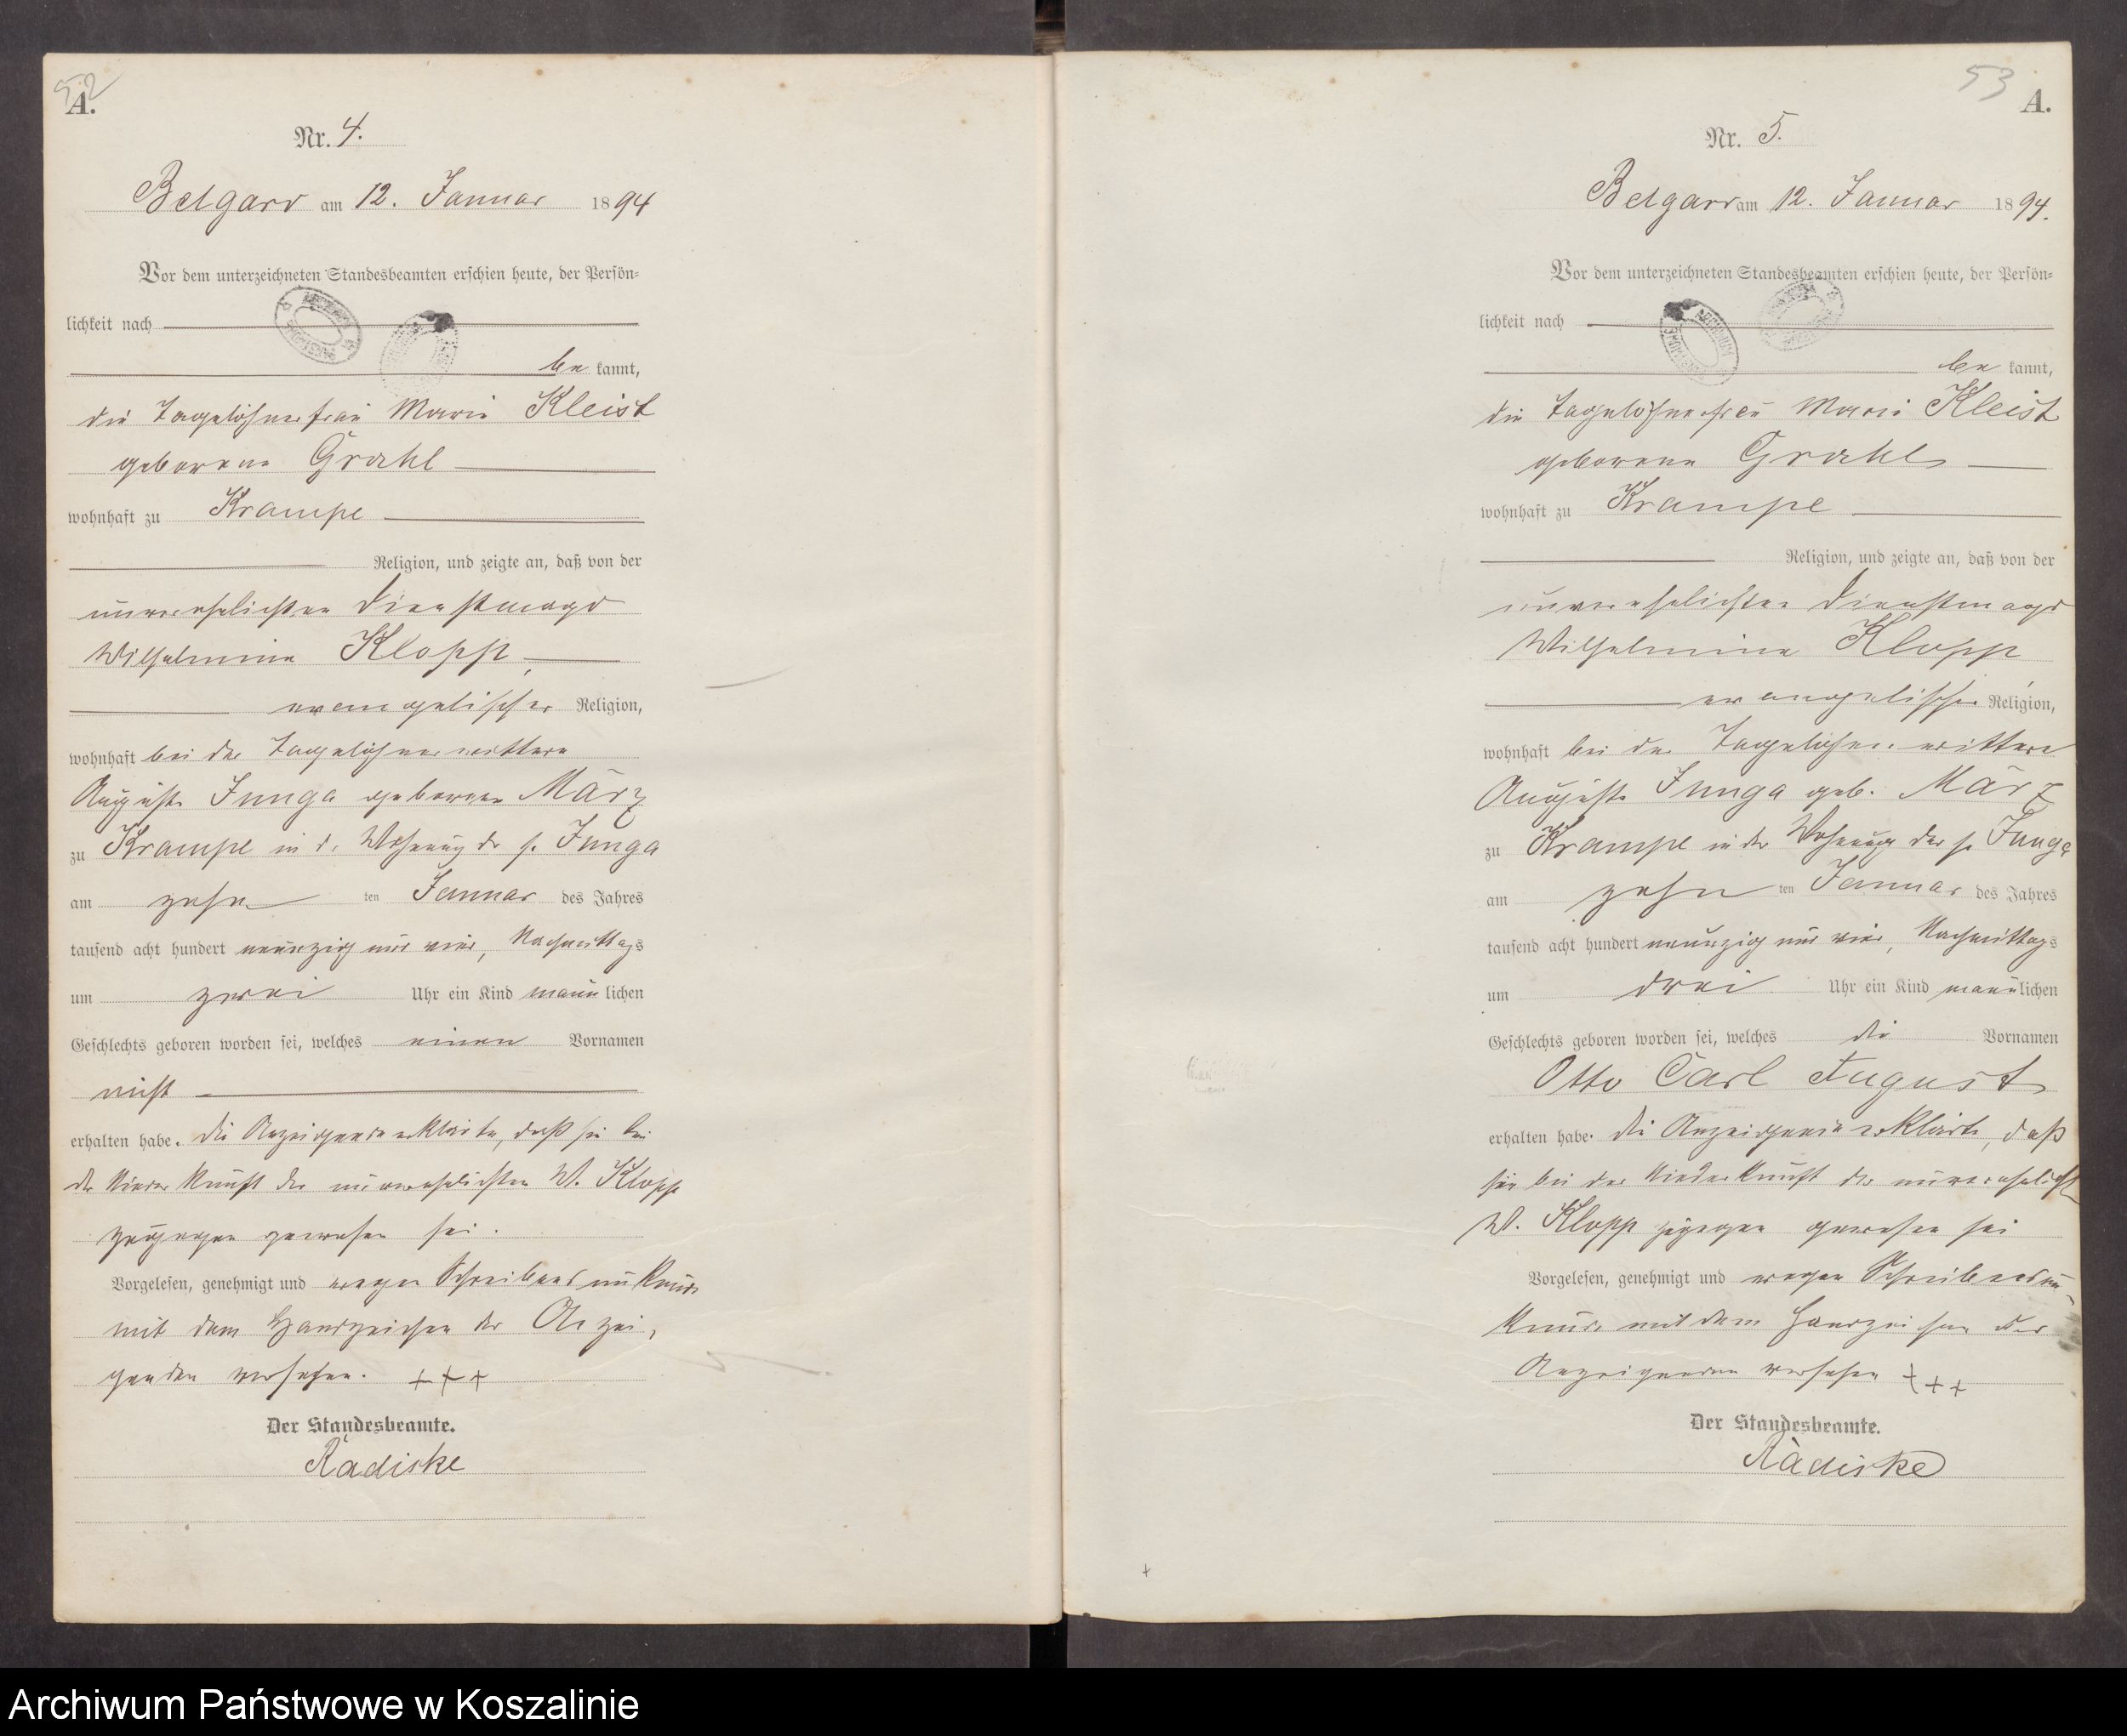 52
A.
Nr. 4.
Belgard am 12. Januar 1894
Vor dem unterzeichneten Standesbeamten erschien heute, der Persön-
lichkeit nach
be kannt,
die Tagelöhnerfrau Marie Kleist
geborene Grahl
wohnhaft zu Krampe
Religion, und zeigte an, daß von der
unverehelichten Dienstmagd
Wilhelmine Klopp
evangelischer Religion,
wohnhaft bei der Tagelöhnerwittwe
Auguste Junga geborene März
zu Krampe in d. Wohnung der p. Junga
am zehn ten Januar des Jahres
tausend acht hundert neunzig und vier, Nachmittags
um zwei Uhr ein Kind männ lichen
Geschlechts geboren worden sei, welches einen Vornamen
nicht
erhalten habe. Die Anzeigende erklärte, daß sie bei
der Niederkunft der unverehelichten W. Klopp
zugegen gewesen sei.
Vorgelesen, genehmigt und wegen Schreibensunkunde
mit dem Handzeichen der Anzei-
genden versehen. +++
Der Standesbeamte.
Radiske
53
A.
Nr. 5.
Belgard am 12. Januar 1894.
Vor dem unterzeichneten Standesbeamten erschien heute, der Persön-
lichkeit nach
be kannt,
die Tagelöhnerfrau Marie Kleist
geborene Grahl
wohnhaft zu Krampe
Religion, und zeigte an, daß von der
unverehelichten Dienstmagd
Wilhelmine Klopp
evangelischer Religion,
wohnhaft bei der Tagelöhnerwittwe
Auguste Junga geb. März
zu Krampe in der Wohnung der p. Junga
am zehn ten Januar des Jahres
tausend acht hundert neunzig und vier, Nachmittags
um drei Uhr ein Kind männ lichen
Geschlechts geboren worden sei, welches die Vornamen
Otto Carl August
erhalten habe. Die Anzeigende erklärte, daß
sie bei der Niederkunft der unverehelichten
W. Klopp zugegen gewesen sei
Vorgelesen, genehmigt und wegen Schreibensun-
kunde mit dem Handzeichen der
Anzeigenden versehen +++
Der Standesbeamte.
Radiske
Archiwum Państwowe w Koszalinie